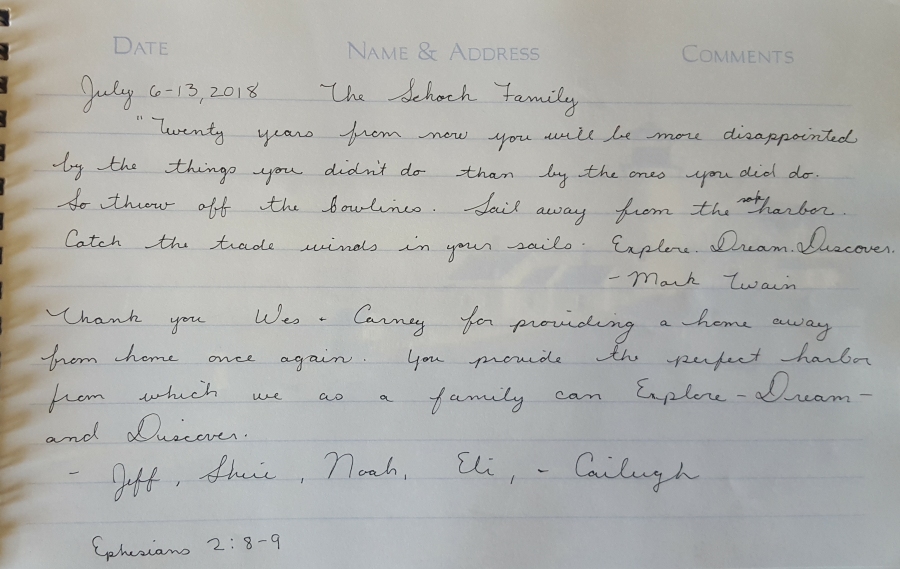 DATE NAME & ADDRESS COMMENTS
July 6-13, 2018 The Schoch Family
"Twenty years from now you will be more disappointed
by the things you didn't do than by the ones you did do.
So throw off the bowlines. Sail away from the safe harbor.
Catch the trade winds in your sails. Explore. Dream. Discover.
- Mark Twain
Thank you Wes + Carney for providing a home away
from home once again. You provide the perfect harbor
from which we as a family can Explore - Dream -
and Discover.
- Jeff, Sheri, Noah, Eli, - Caileigh
Ephesians 2:8-9